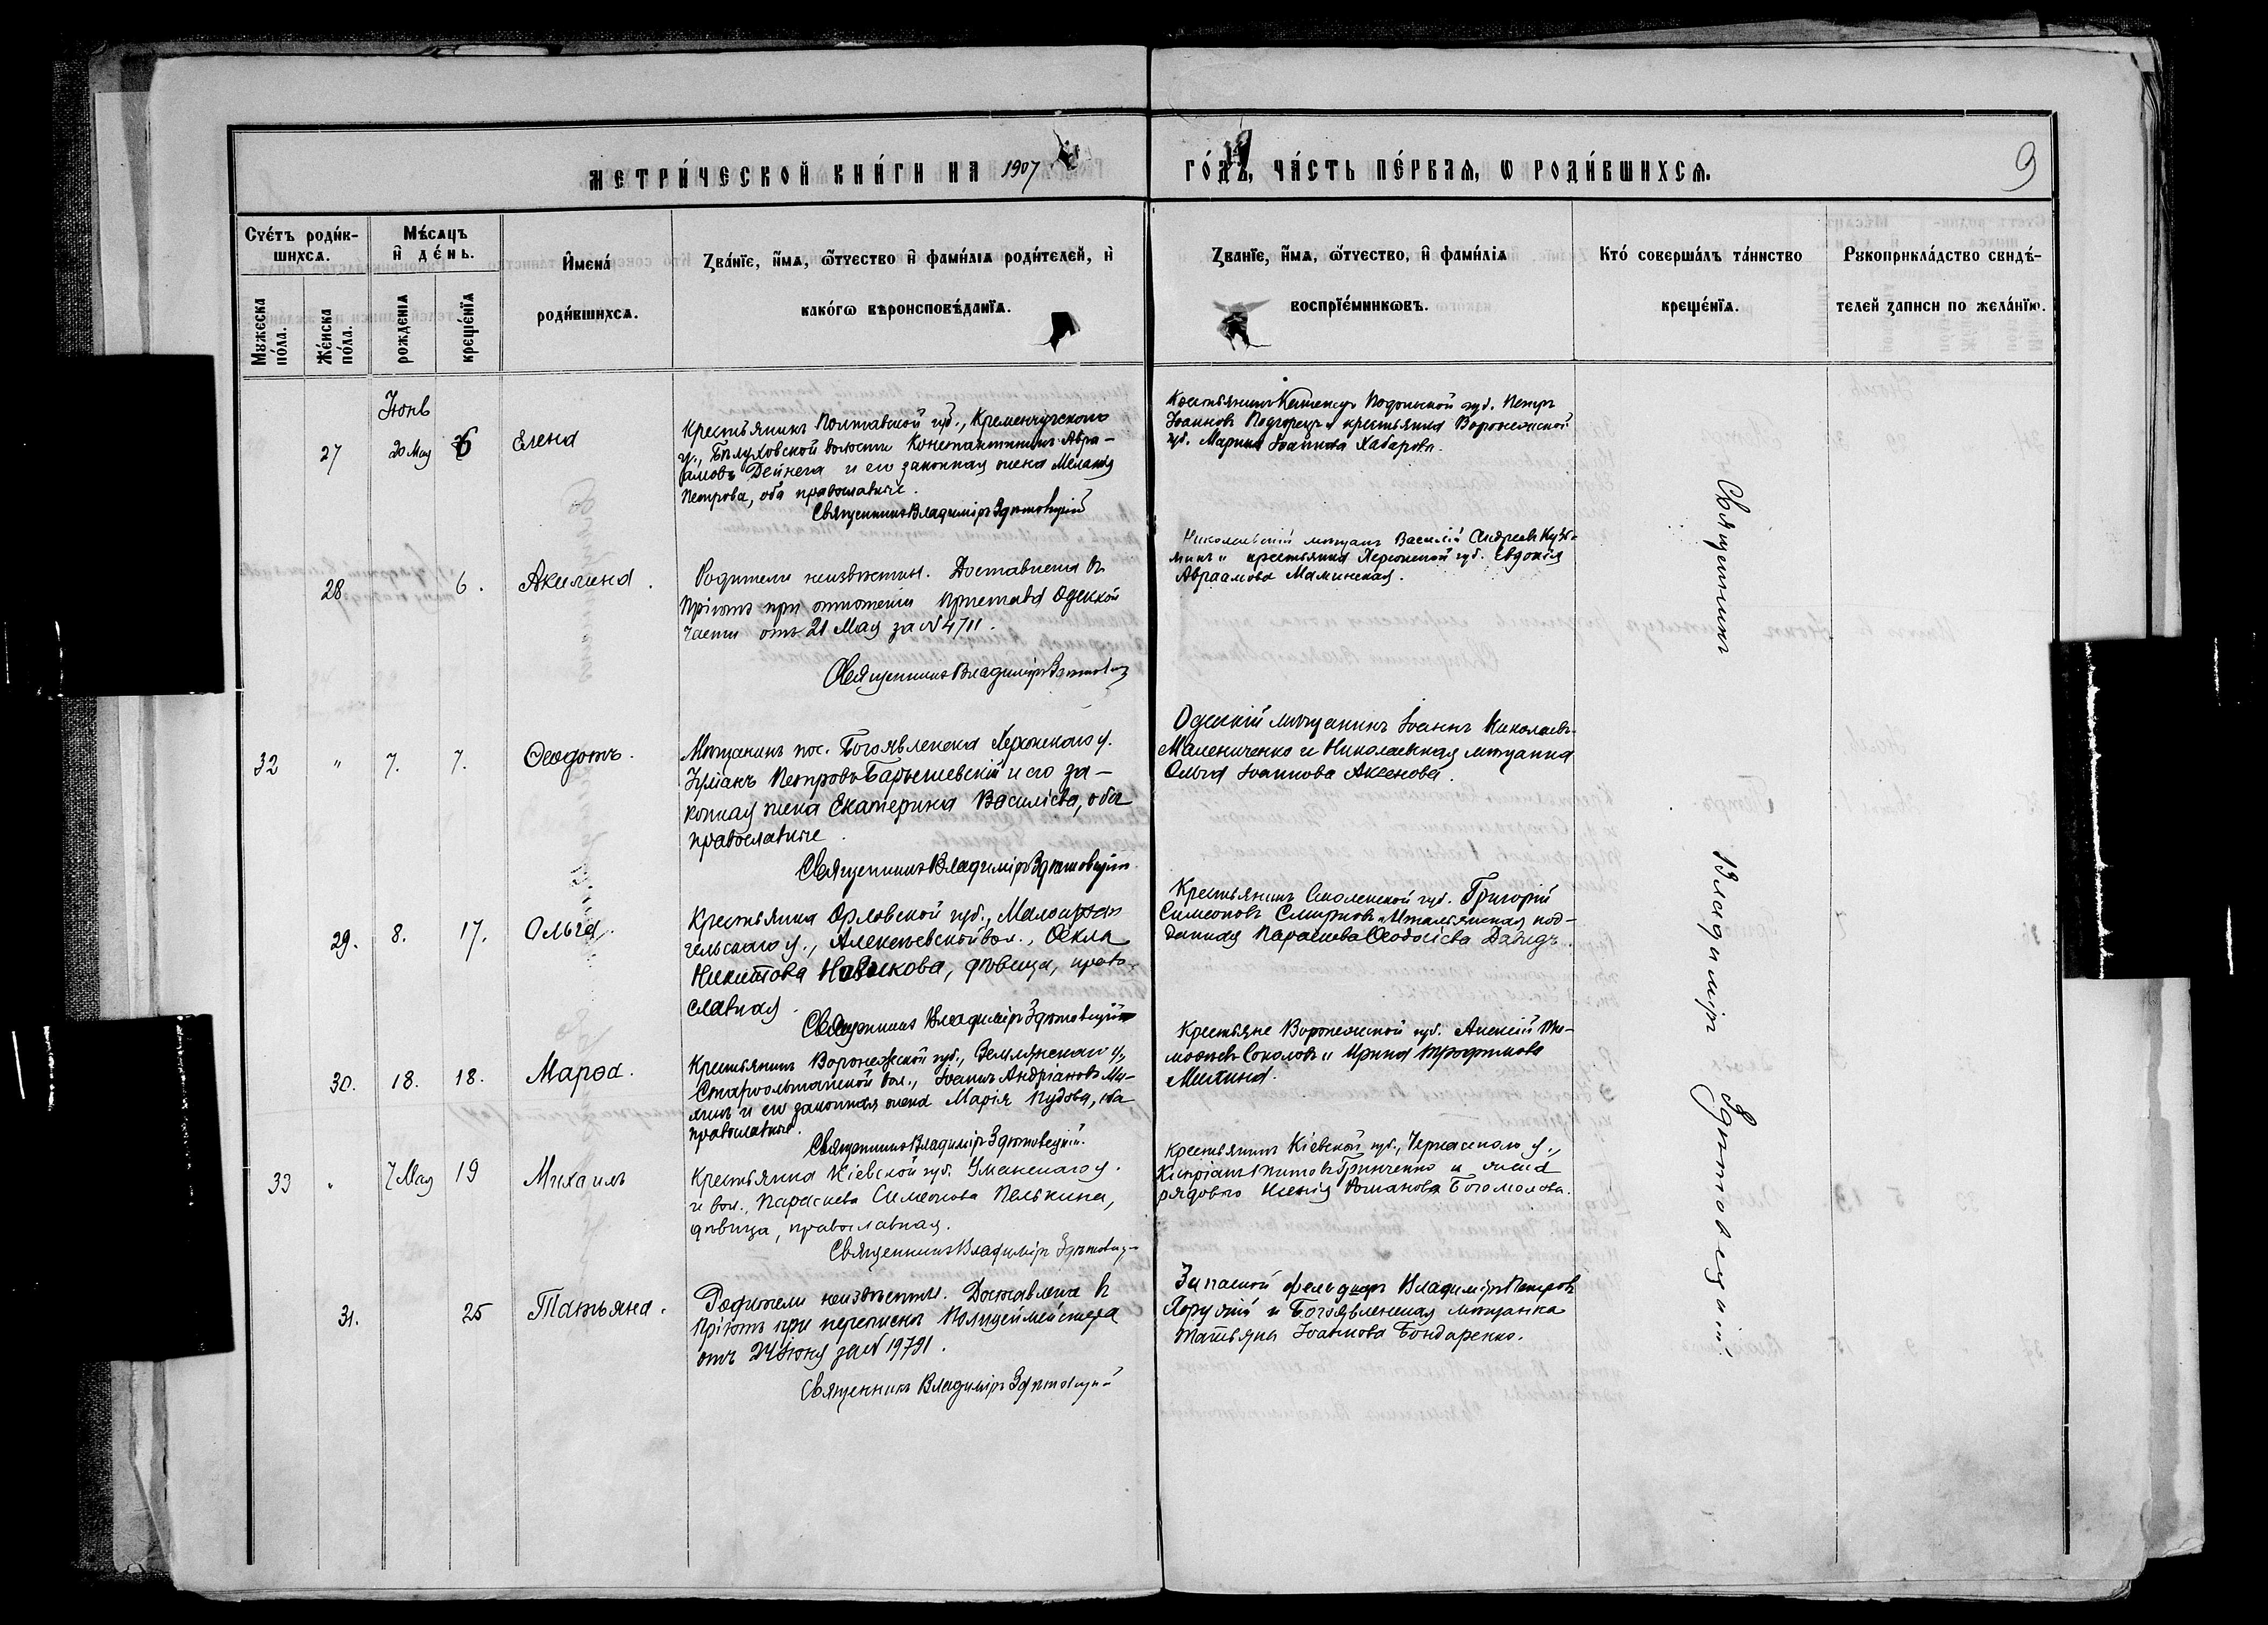 МЕТРИ́ЧЕСКОЙ КНИ́ГИ НА 1907
ГО́ДЪ, ЧА́СТЬ ПЕ́РВАѦ, Ѡ РОДИ́ВШИХСѦ.
9
Сче́тъ роди́в-
шихсѧ.
Мѣ́сѧцъ
и҆ де́нь.
Мꙋжеска
по́ла.
Же́нска
по́ла.
рожденїѧ
креще́нїѧ
И҆мена́
роди́вшихсѧ.
Зва́нїе, и҆́мѧ, ѻ҆́тчество и҆ фами́лїѧ роди́телей, и҆
како́гѡ вѣроисповѣ́данїѧ.
Зва́нїе, и҆́мѧ, ѻ҆́тчество, и҆ фами́лїѧ
воспрїе́мникѡвъ.
Кто́ соверша́лъ та́инство
креще́нїѧ.
Рꙋкоприкла́дство свидѣ́-
телей записи по жела́нїю.
Іюнь
27
20 Мая
6
Елена
Крестьянинъ Полтавской губ., Кременчугскаго
у., Бѣлуховской волости Константинъ Авра-
амовъ Дейнега и его законная жена Меланія
Петрова, оба православные.
Священникъ Владиміръ Здѣтовецкій
Крестьянинъ Каменецъ Подольской губ. Петръ
Іоанновъ Подгорецъ и крестьянка Воронежской
губ. Марина Іоаннова Хабарова.
28
6.
Акилина.
Родители неизвѣстны. Доставлена въ
Пріютъ при отношеніи Пристава Одесской
части отъ 21 Мая за № 4711.
Священникъ Владиміръ Здѣтовец
Николаевскій мѣщан. Василій Андреевъ Кузь-
минъ и крестьянка Херсонской губ. Евдокія
Авраамова Маминская.
32
"
7.
7.
Ѳеодотъ.
Мѣщанинъ пос. Богоявленска Херсонскаго у.
Іуліанъ Петровъ Барышевскій и его за-
конная жена Екатерина Василіева, оба
православные.
Священникъ Владиміръ Здѣтовецкій
Одесскій мѣщанинъ Іоаннъ Николаевъ
Малениченко и Николаевская мѣщанка
Ольга Іоаннова Аксенова.
29.
8.
17.
Ольга.
Крестьянка Орловской губ., Малоархан-
гельскаго у., Алексѣевской вол., Ѳекла
Никитова Новикова, дѣвица, право-
славная.
Священникъ Владиміръ Здѣтовецкій
Крестьянинъ Смоленской губ. Григорій
Симеоновъ Смирновъ и Итальянская под-
данная Параскева Ѳеодосіева Давидъ.
30.
18.
18.
Марѳа.
Крестьянинъ Воронежской губ., Землянскаго у.,
Староольшанской вол., Іоаннъ Андріановъ Ми-
линъ и его законная жена Марія Пудова, оба
православные.
Священникъ Владиміръ Здѣтовецкій.
Крестьяне Воронежской губ. Алексій Ти-
моѳеевъ Соколовъ и Ирина Трофимова
Милина.
33
"
7 Мая
19
Михаилъ
Крестьянка Кіевской губ. Уманскаго у.
и вол., Параскева Симеонова Пелькина,
дѣвица, православная.
Священникъ Владиміръ Здѣтовец
Крестьянинъ Кіевской губ., Черкасскаго у.,
Кипріанъ Титовъ Гринченко и жена
рядового Ксенія Романова Богомолова.
31.
25
Татьяна.
Родители неизвѣстны. Доставлена въ
Пріютъ при перепискѣ Полицеймейстера
отъ 24 Іюня за № 19791.
Священникъ Владиміръ Здѣтовецкій
Запасной фельдшеръ Владиміръ Петровъ
и Богоявленская мѣщанка
Татьяна Іоаннова Бондаренко.
Священникъ Владиміръ Здѣтовецкій